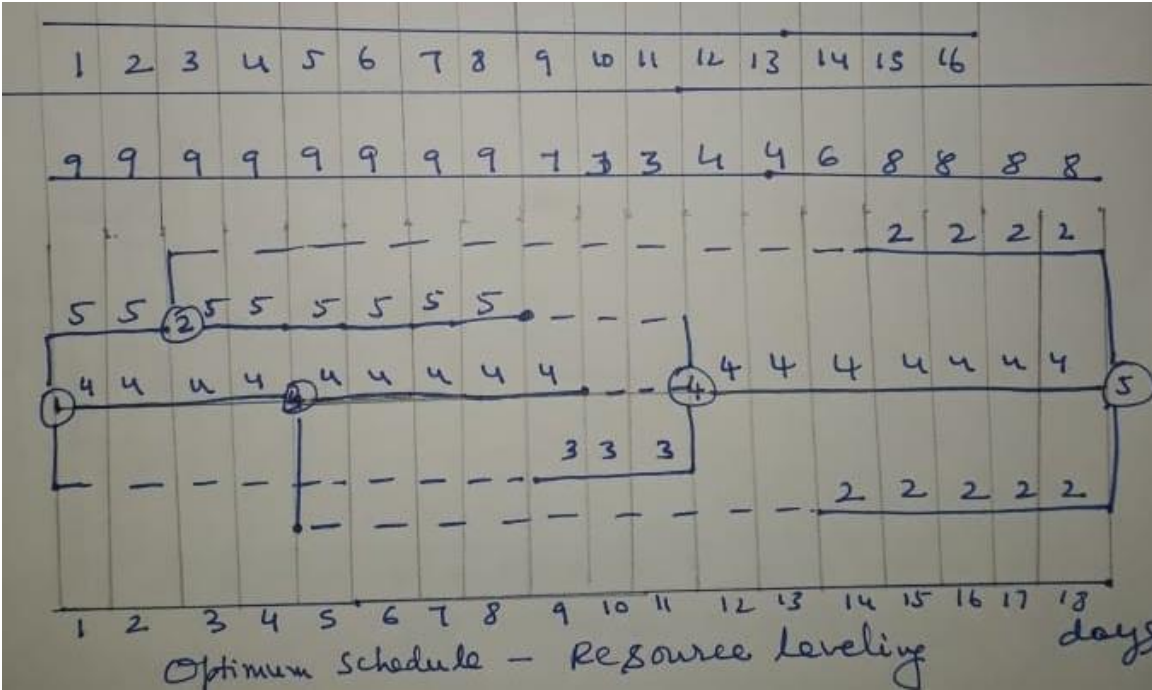 1 2 3 4 5 6 7 8 9 10 11 12 13 14 15 16
9 9 9 9 9 9 9 9 7 3 3 4 4 6 8 8 8 8
2 2 2 2
5 5 2 5 5 5 5 5 5
1 4 4 4 4 3 4 4 4 4 4 4 4 4 4 4 4 4 4 5
3 3 3
2 2 2 2 2
1 2 3 4 5 6 7 8 9 10 11 12 13 14 15 16 17 18
Optimum Schedule - Resource leveling days